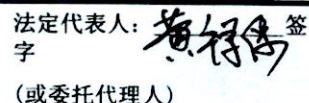 法定代表人：签
字
(或委托代理人)